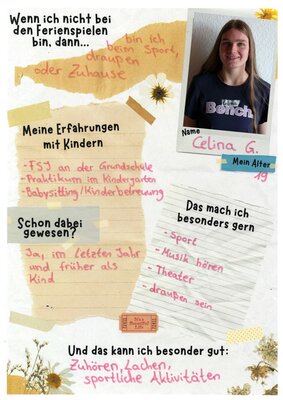 Wenn ich nicht bei
den Ferienspielen
bin, dann...
bin ich
beim Sport,
draußen
oder Zuhause
Bench.
Name
Celina G.
Mein Alter
19
Meine Erfahrungen
mit Kindern
- FSJ an der Grundschule
- Praktikum im Kindergarten
- Babysitting/Kinderbetreuung
Schon dabei
gewesen?
Ja, im letzten Jahr
und früher als
Kind
Das mach ich
besonders gern
- Sport
- Musik hören
- Theater
- draußen sein
Und das kann ich besonder gut:
Zuhören, Lachen,
sportliche Aktivitäten